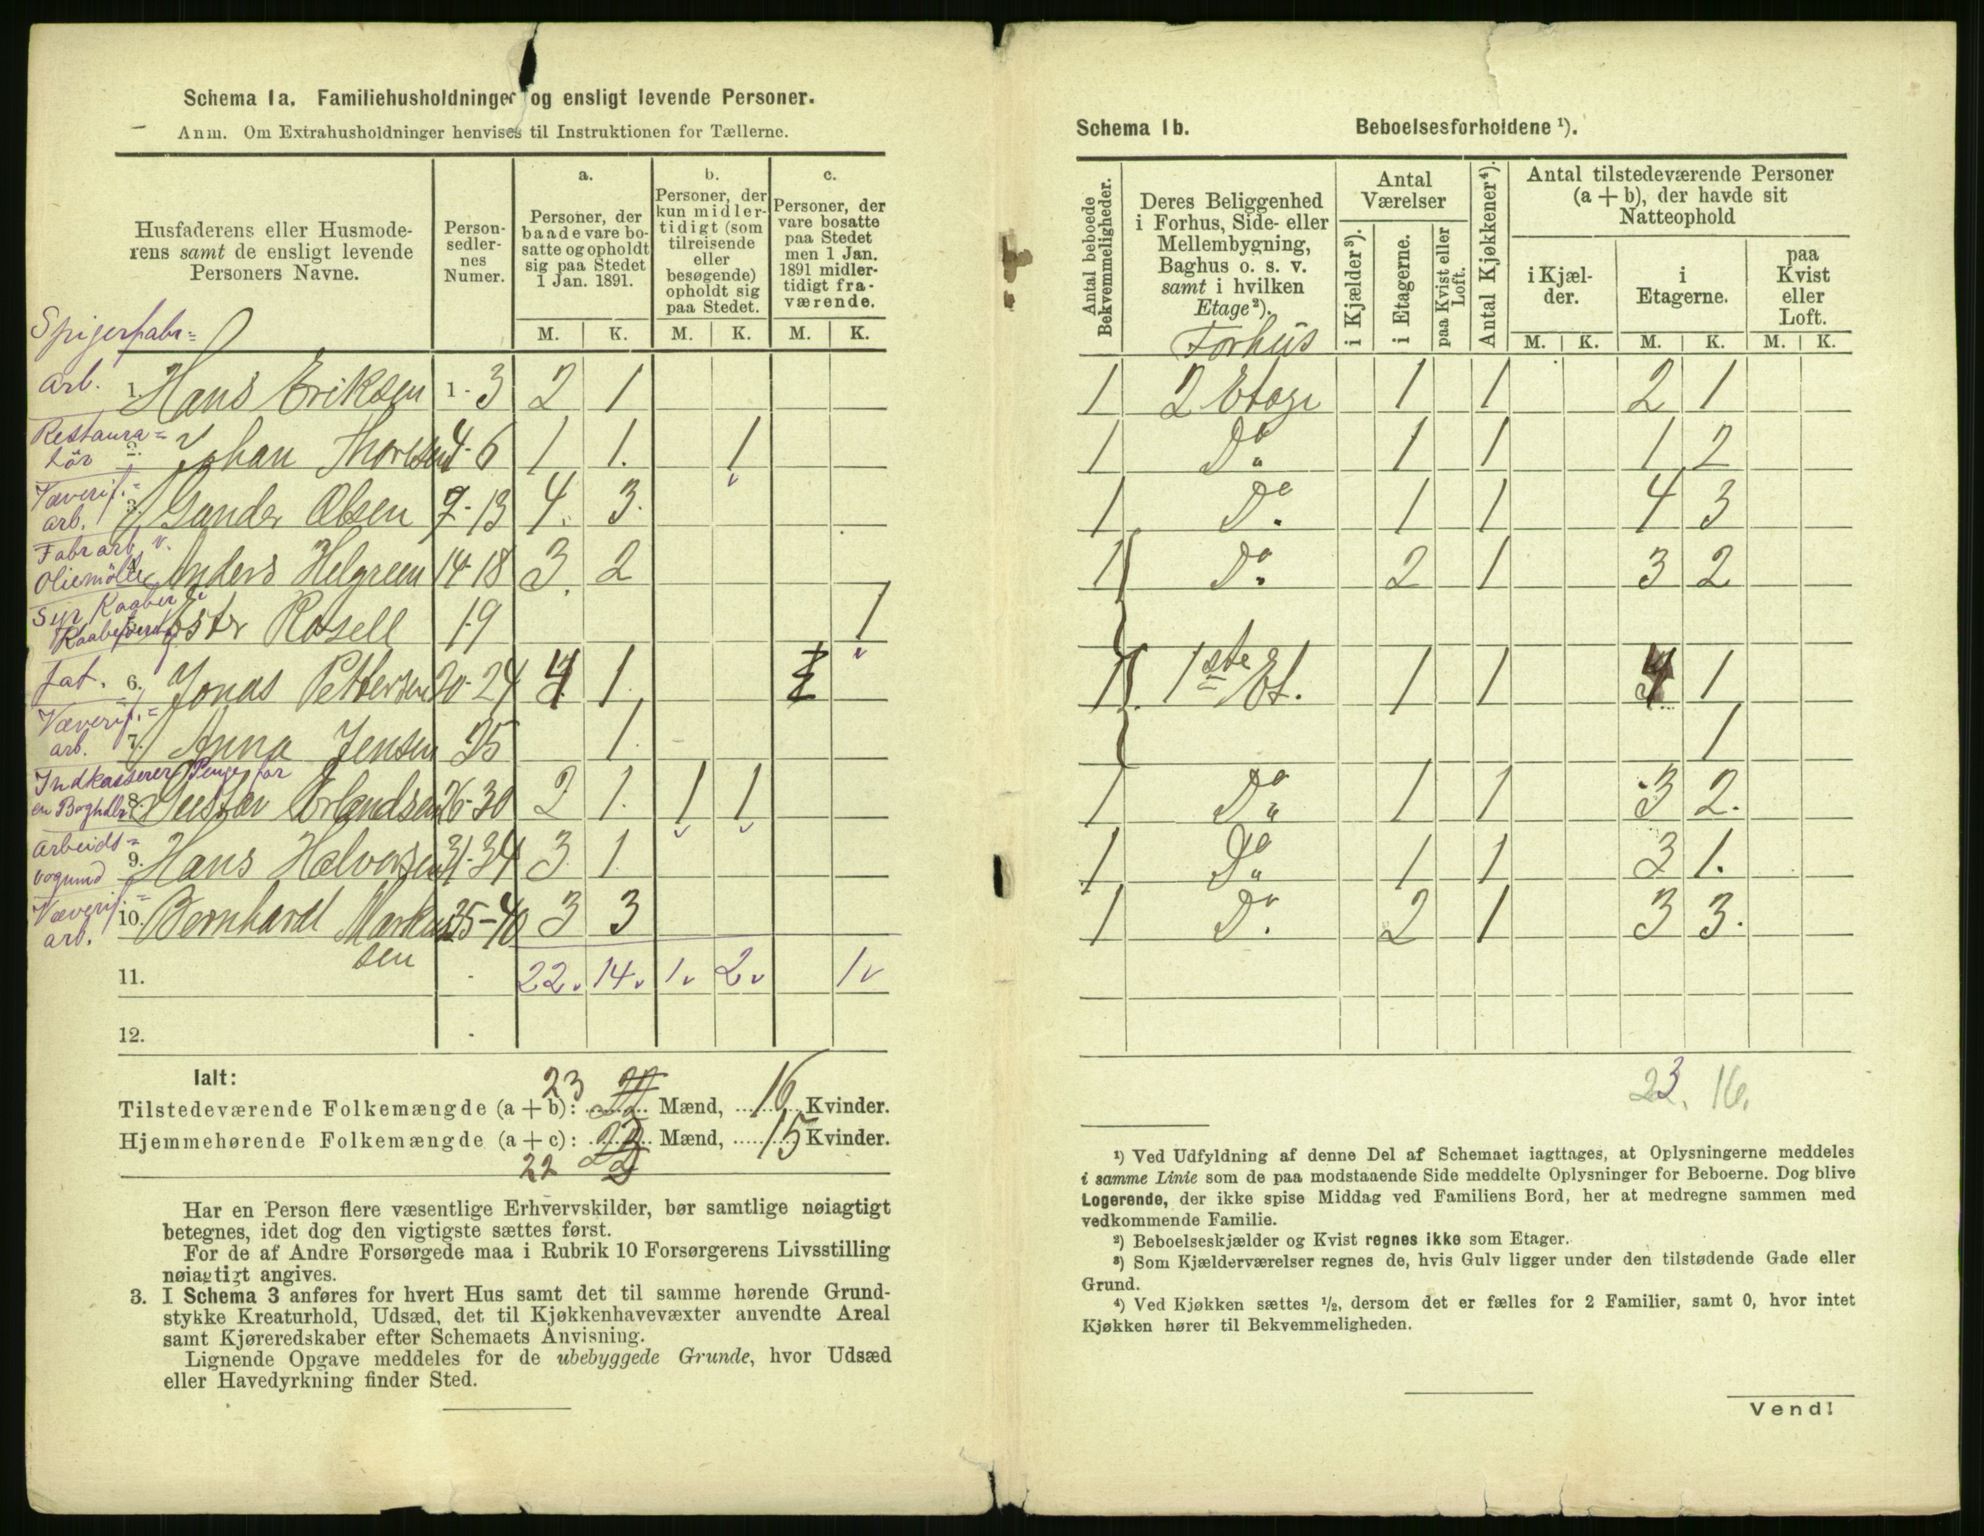 Schema 1a. Familiehusholdninger og ensligt levende Personer.
Anm. Om Extrahusholdninger henvises til Instruktionen for Tællerne.
Husfaderens eller Husmoderens samt de ensligt levende Personers Navne.
Personsedlernes Numer.
a. Personer, der baade vare bosatte og opholdt sig paa Stedet 1 Jan. 1891.
b. Personer, der kun midlertidigt (som tilreisende eller besøgende) opholdt sig paa Stedet.
c. Personer, der vare bosatte paa Stedet men 1 Jan. 1891 midlertidigt fraværende.
M. K. M. K. M. K.
Spigerfabr= arb. 1. Hans Eriksen 1-3 2 1
Restaura= tör 2. Johan Thoresen 4-6 1 1. 1
Væverif.= arb. 3. Gunder Olsen 7-13 4. 3.
Fabrarb. v. Oliemölle Anders Helgreen 14-18 3. 2
Syr Kaaber i Ester Rosell 19 1
fat. 6. Jonas Pettersen 20-24 4 1
Væverif.= arb. 7. Anna Jensen 25 1.
Indkasserer Penge for en Boghdlr 8. Gustav Erlandsen 26-30 2 1. 1 1
Arbeids= 9. Hans Halvorsen 31-34 3 1.
Væverif.= arb. 10. Bernhard Markussen 35-40 3 3
11. 22. 14. 1. 2. 1
12.
Ialt:
Tilstedeværende Folkemængde (a + b): 23 Mænd, 16 Kvinder.
Hjemmehørende Folkemængde (a + c): 22 Mænd, 15 Kvinder.
Har en Person flere væsentlige Erhvervskilder, bør samtlige nøiagtigt
betegnes, idet dog den vigtigste sættes først.
For de af Andre Forsørgede maa i Rubrik 10 Forsørgerens Livsstilling
nøiagtigt angives.
3. I Schema 3 anføres for hvert Hus samt det til samme hørende Grund-
stykke Kreaturhold, Udsæd, det til Kjøkkenhavevæxter anvendte Areal
samt Kjøreredskaber efter Schemaets Anvisning.
Lignende Opgave meddeles for de ubebyggede Grunde, hvor Udsæd
eller Havedyrkning finder Sted.
Schema 1b. Beboelsesforholdene ¹).
Antal beboede Bekvemmeligheder.
Deres Beliggenhed i Forhus, Side- eller Mellembygning, Baghus o. s. v. samt i hvilken Etage²).
Antal Værelser
i Kjælder³).
i Etagerne.
paa Kvist eller Loft.
Antal Kjøkkener⁴).
Antal tilstedeværende Personer (a + b), der havde sit Natteophold
i Kjælder.
i Etagerne.
paa Kvist eller Loft.
M. K. M. K. M. K.
Forhus
1 2 Etage 1 1 2 1
1 Do 1 1 1 2
1 Do. 1 1 4 3
1 Do. 2 1 3 2
1 1ste Et. 1 1 4 1
1
1 Do 1 1 3 2.
1 Do 1 1 3 1.
1 Do. 2 1 3 3.
23. 16.
¹) Ved Udfyldning af denne Del af Schemaet iagttages, at Oplysningerne meddeles
i samme Linie som de paa modstaaende Side meddelte Oplysninger for Beboerne. Dog blive
Logerende, der ikke spise Middag ved Familiens Bord, her at medregne sammen med
vedkommende Familie.
²) Beboelseskjælder og Kvist regnes ikke som Etager.
³) Som Kjælderværelser regnes de, hvis Gulv ligger under den tilstødende Gade eller
Grund.
⁴) Ved Kjøkken sættes ½, dersom det er fælles for 2 Familier, samt 0, hvor intet
Kjøkken hører til Bekvemmeligheden.
Vend!